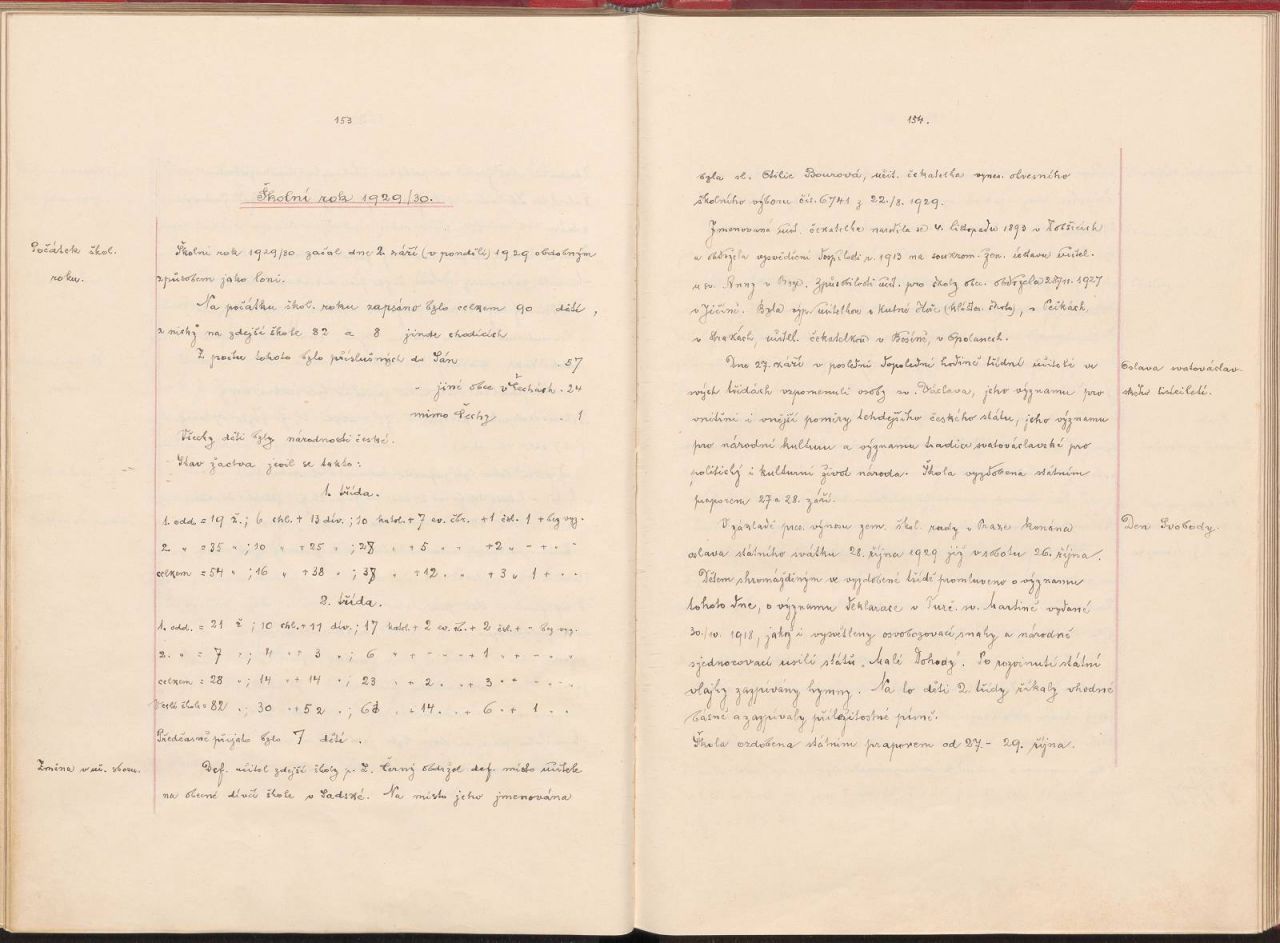 153
Školní rok 1929/30.
Počátek škol.
roku.
Školní rok 1929/30 začal dne 2. září (v pondělí) 1929 obdobným
způsobem jako loni.
Na počátku škol. roku zapsáno bylo celkem 90 dětí,
z nichž na zdejší škole 82 a 8 jinde chodících
Z počtu tohoto bylo příslušných do Sán 57
" jiné obce v Čechách . 24
mimo Čechy . 1
Všechy děti byly národnosti české.
Stav žactva jevil se takto:
1. třída.
1. odd. = 19 ž.; 6 chl. + 13 dív.; 10 katol. + 7 ev. čbr. + 1 čsl. 1 + bez vyz.
2. " = 35 " ; 10 " + 25 " ; 28 " + 5 " " + 2 " - + - -
celkem = 54 " ; 16 " + 38 " ; 38 " + 12 " " + 3 " 1 + - -
2. třída.
1. odd. = 21 ž ; 10 chl. + 11 dív.; 17 katol. + 2 ev. čb. + 2 čsl. + - bez vyz.
2. " = 7 " ; 4 " + 3 " ; 6 " + - " - + 1 " + - " "
celkem = 28 " ; 14 " + 14 " ; 23 " + 2 " " + 3 " + - " "
škola = 82 " ; 30 " + 52 " ; 61 " + 14 " " + 6 " + 1 " "
Předčasně přijato bylo 7 dětí.
Změna v uč. sboru.
Def. učitel zdejší školy p. Černý obdržel def. místo učitele
na obecné dívčí škole v Sadské. Na místo jeho jmenována
154.
byla sl. Otilie Bourová, učit. čekatelka výnos. okresního
školního výboru čís. 6741 z 22./8. 1929.
Jmenovaná učit. čekatelka narodila se 4. listopadu 1893 v
a obdržela vysvědčení dospělosti r. 1913 na soukrom. žen. ústavu učitel.
u sv. Anny v Praze. Způsobilosti uč. pro školy obec. obdržela 1927
v Jičíně. Byla výp. učitelkou v Kutné Hoře (klášter. škola), v Pečkách,
v Drakách, učitel. čekatelkou v Běšíně, v Opolanech.
Dne 27. září v poslední dopolední hodině třídní učitelé ve
svých třídách vzpomenuli osoby sv. Václava, jeho významu pro
vnitřní i vnější poměry tehdejšího českého státu, jeho významu
pro národní kulturu a významu tradice svatováclavské pro
politický i kulturní život národa. Škola vyzdobena státním
praporem 27 a 28. září.
Oslava svatováclav-
ského tisíciletí.
V základě prés. výnosu zem. škol. rady v Praze konána
oslava státního svátku 28. října 1929 již v sobotu 26. října.
Dětem shromážděným ve vyzdobené třídě promluveno o významu
tohoto dne, o významu deklarace v Turč. sv. Martině vydané
30./10. 1918, jakož i vysvětleny osvobozovací snahy a národně
sjednocovací úsilí států "Malé Dohody". Po rozvinutí státní
vlajky zazpívány hymny. Na to děti 2. třídy říkaly vhodné
básně a zazpívaly příležitostné písně.
Škola ozdobena státním praporem od 27 - 29. října.
Den Svobody.